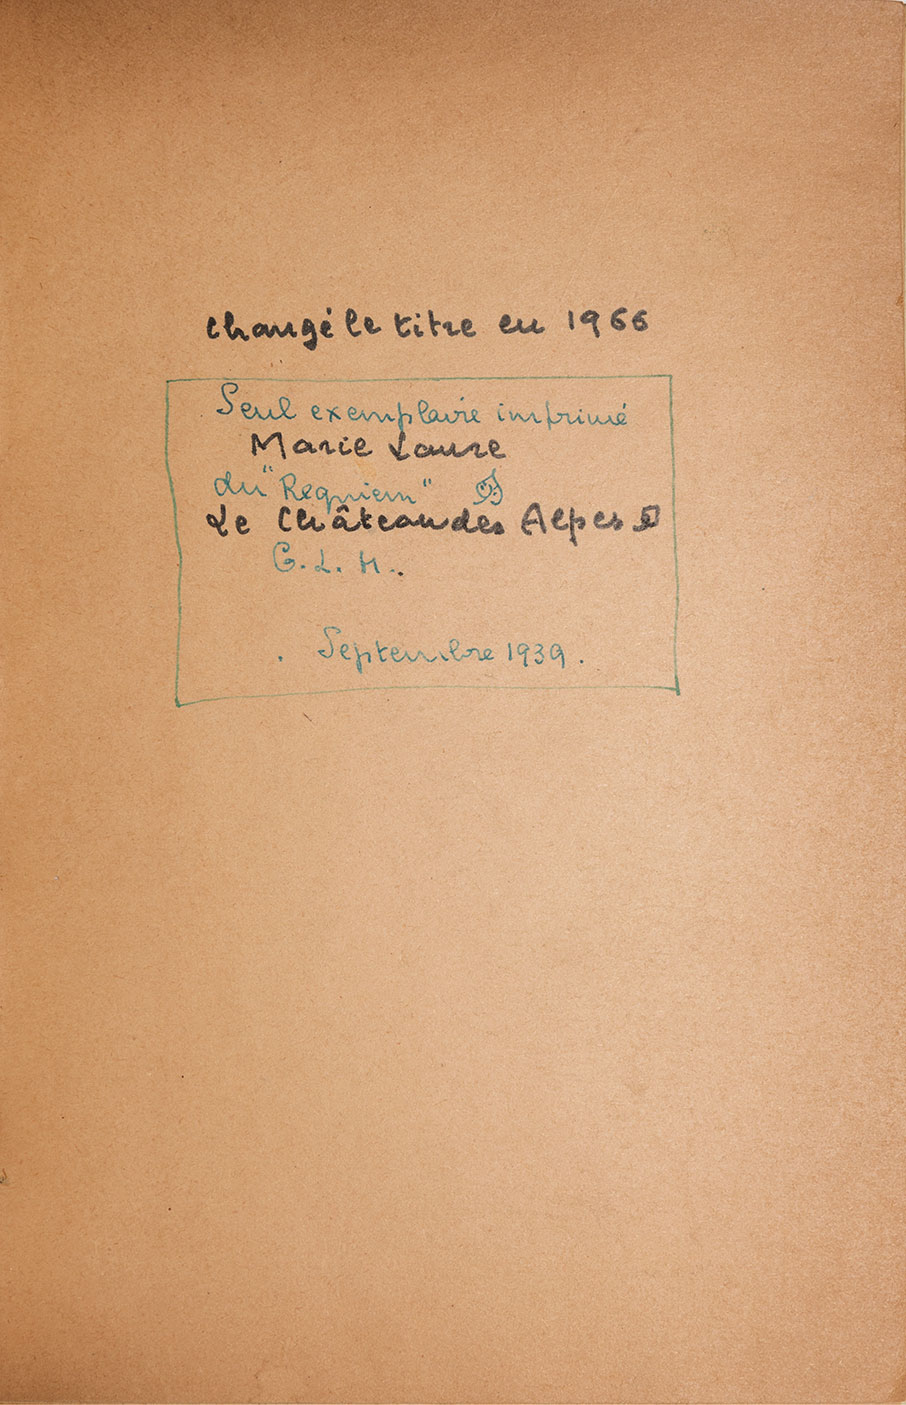 changé le titre en 1966
Seul exemplaire imprimé
Marie Laure
du "Requiem"
Le Château des Alpes
G.L.M..
. Septembre 1939.